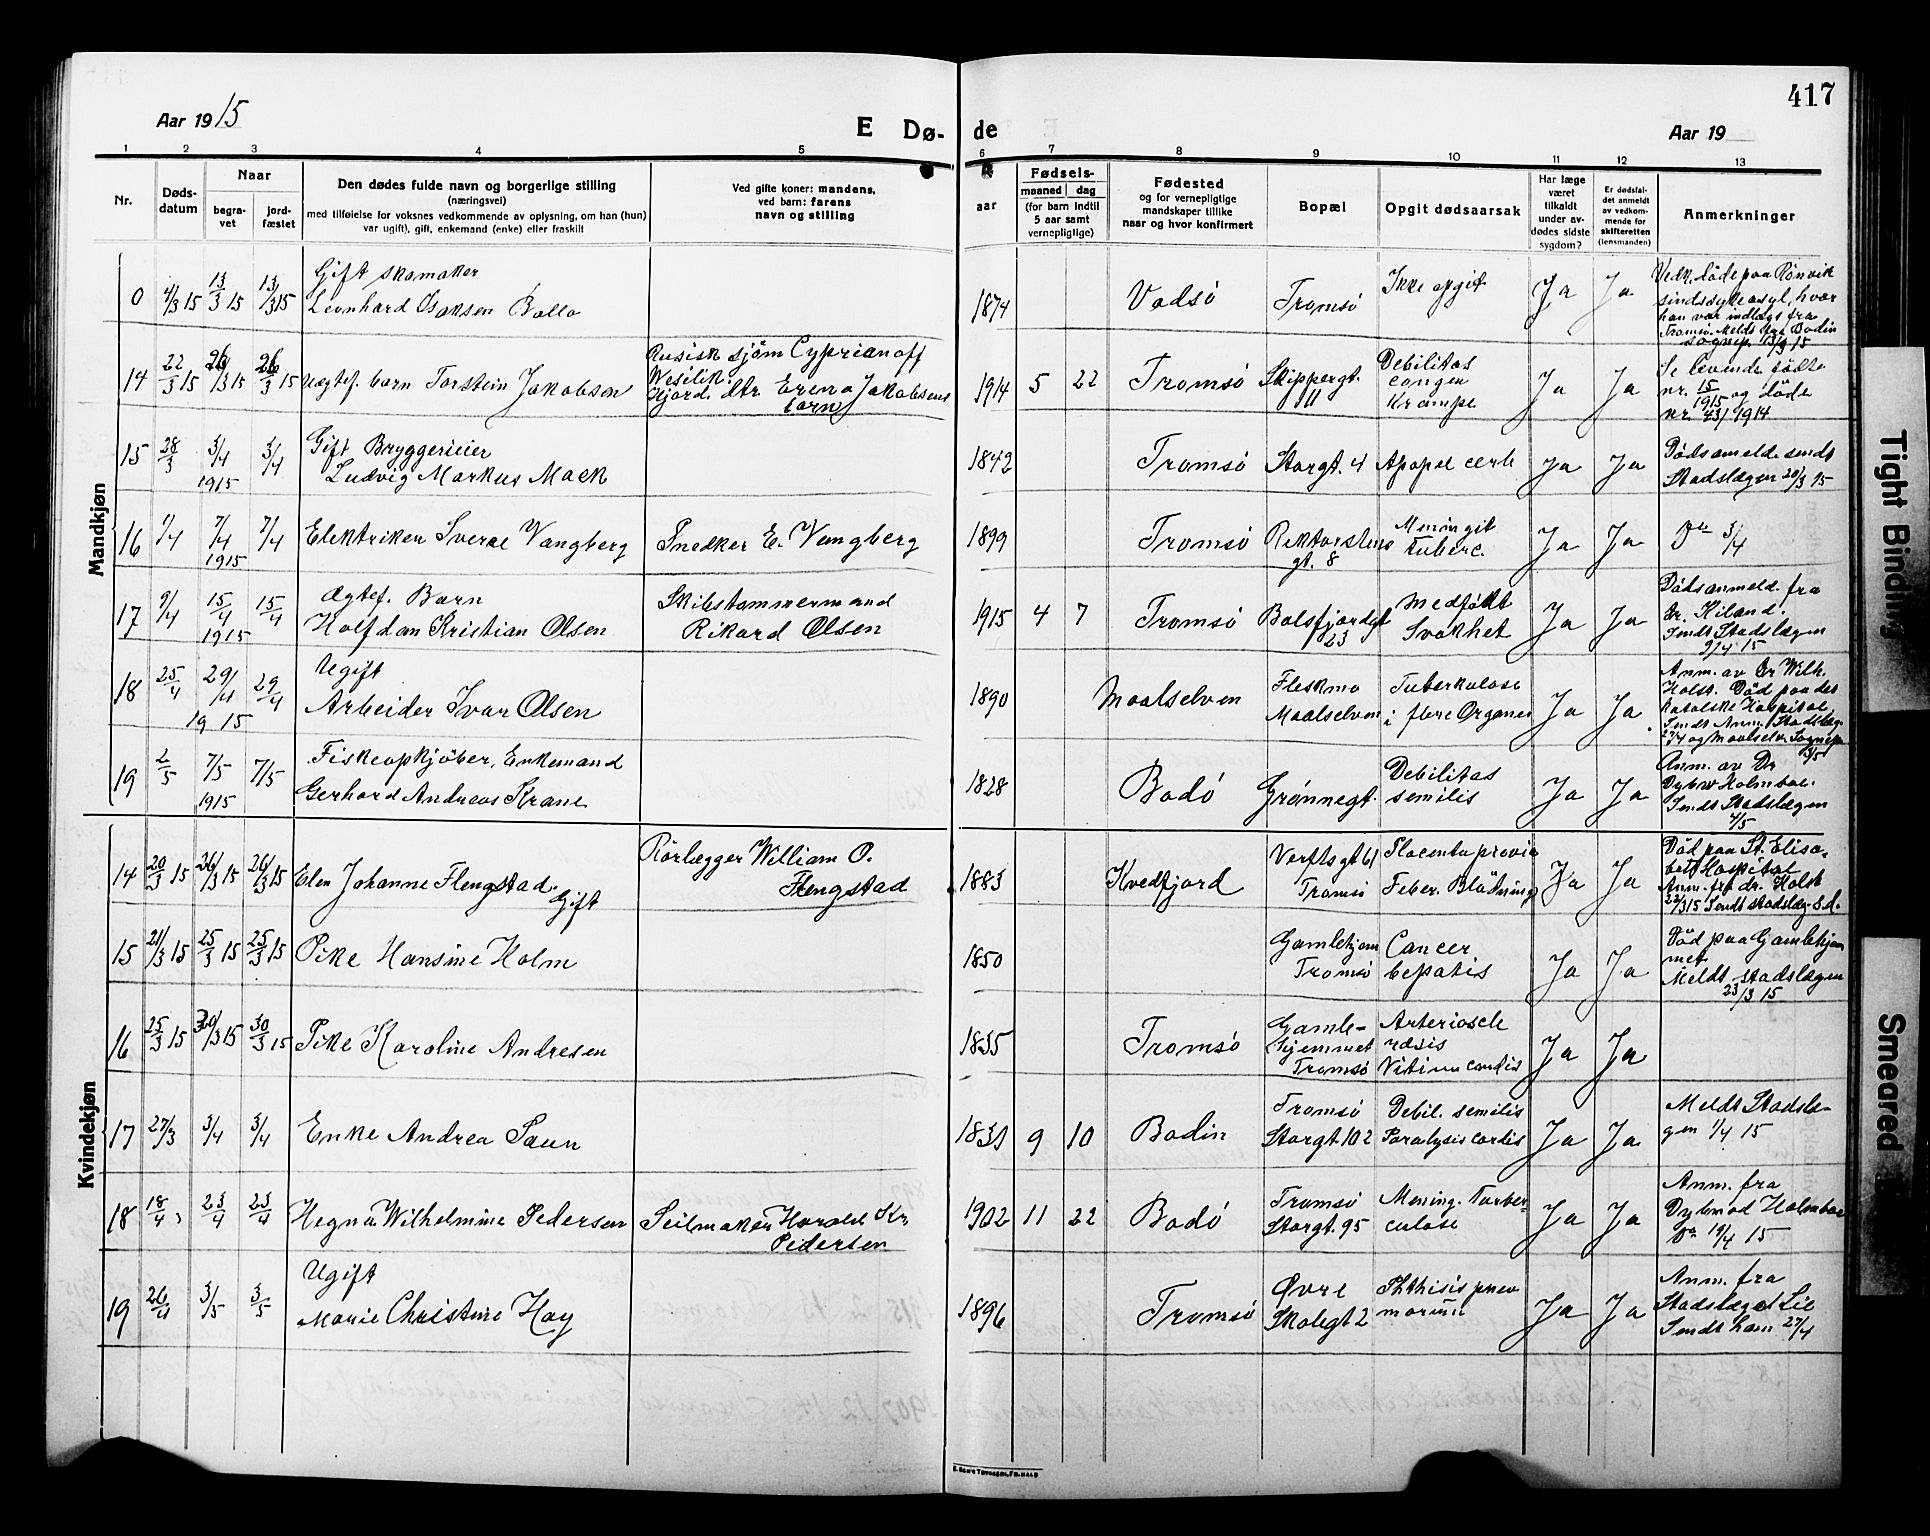 417
Aar 1915
E Dø-
de
Aar 19
1 2 3 4 5 6 7 8 9 10 11 12 13
Nr.
Døds-
datum
Naar
begra-
vet
jord-
fæstet
Den dødes fulde navn og borgerlige stilling
(næringsvei)
med tilføielse for voksnes vedkommende av oplysning, om han (hun)
var ugift), gift, enkemand (enke) eller fraskilt
Ved gifte koner: mandens,
ved barn: farens
navn og stilling
aar
Fødsels-
maaned dag
(for barn indtil
5 aar samt
vernepligtige)
Fødested
og for vernepligtige
mandskaper tillike
naar og hvor konfirmert
Bopæl
Opgit dødsaarsak
Har læge
været
tilkaldt
under av-
dødes sidste
sygdom?
Er dødsfal-
det anmeldt
av vedkom-
mende for
skifteretten
(lensmanden)
Anmerkninger
Mandkjøn
0 4/3 15 13/3 15 13/3 15
Gift skomaker
Leonhard Isaksen Bollo
1874 Vadsö Tromsö Ikke opgit Ja Ja
Vedk. döde paa Rönvik
sindssykeasyl, hvor
han var indlagt fra
Tromsö. Meldt fra Bodin
sognep. 13/3 15
14 22/3 15 26/3 15 26/3 15
Uægtef. barn Torstein Jakobsen
Rusisk sjöm Cyprianoff
Wesilik.
Gjord. dtr. Erena Jakobsens
barn
1914 5 22 Tromsö Skippergt. 11
Debilitas
congen
Krampe
Ja Ja
Se levende födte
nr. 15 1915 og döde
nr. 43/1914
15 28/3 3/4 1915 3/4
Gift Bryggerieier
Ludvig Markus Mack
1842 Tromsö Storgt. 4 Apopel cerb Ja Ja
Dödsameld. sendt
Stadslægen 29/3 15
16 1/4 7/4 1915 7/4
Elektriker Sverre Vangberg
Snedker E. Vangberg
1899 Tromsö Rektorstens
gt. 8
Meningit
tuberc.
Ja Ja
Do 3/4
17 9/4 15/4 1915 15/4
Ægtef. Barn
Halfdan Kristian Olsen
Skibstømmermand
Rikard Olsen
1915 4 7 Tromsö Balsfjordgt
23
Medfødt
Svakhet
Ja Ja
Dödsanmeld. fra
dr. Kiland.
Sendt Stadslægen
9/4 15
18 25/4 29/4 1915 29/4
Ugift
Arbeider Ivar Olsen
1890 Maalselven
Fleskmo
Maalselven
Tuberkulose
i flere Organer
Ja Ja
Anm. av Dr Wilh.
Holst. Död paa det
katolske Hospital,
Sendt Anm. Stadslæg.
27/4 og Maalselv. Sognep
3/5
19 2/5 7/5 1915 7/5
Fiskeopkjöber, Enkemand
Gerhard Andreas Krane
1828 Bodö Grønnegt.
Debilitas
semilis
Ja Ja
Anm. av Dr
Dybw Holmboe.
Sendt Stadslægen
4/5
Kvindekjøn
14 20/3 15 26/3 15 26/3 15
Elen Johanne Flengstad.
Gift
Rörlægger William O.
Flengstad
1883 Kvedfjord
Verftsgt 61
Tromsö
Placenta prævia
Feber. Blödning
Ja Ja
Död paa St. Elisa-
beth Hospital
Anm. fra dr. Holst
22/3 15 Sendt stadslæg. s.d.
15 21/3 15 25/3 15 25/3 15
Pike Hansine Holm
1850
Gamlehjem
Tromsö
Cancer
hepatis
Ja Ja
Död paa Gamlehjem
met
Meldt Stadslægen
23/3 15
16 25/3 15 30/3 15 30/3 15
Pike Karoline Andresen
1835 Tromsö
Gamle-
hjemmet
Tromsö
Arterioscle
rosis
Vitium cordis
Ja Ja
17 27/3 3/4 3/4
Enke Andrea Saun
1831 9 10 Bodin
Tromsö
Storgt. 102
Debil. semilis
Paralysis cordis
Ja Ja
Meldt Stadslæ-
gen 1/4 15
18 18/4 23/4 23/4
Hegna Wilhelmine Pedersen
Seilmaker Harald Kr
Pedersen
1902 11 22 Bodö
Tromsö
Storgt. 95
Mening. Tuber-
culose
Ja Ja
Anm. fra
Dybwad Holmboe
Do 19/4 15
19 26/4 3/5 3/5
Ugift
Marie Christine Hay
1896 Tromsö
Øvre
Skolegt 2
Phthisis pneu
monum
Ja Ja
Anm. fra
Stadslæge Lie
Sendt ham 27/4
Tight Binding
Smeared